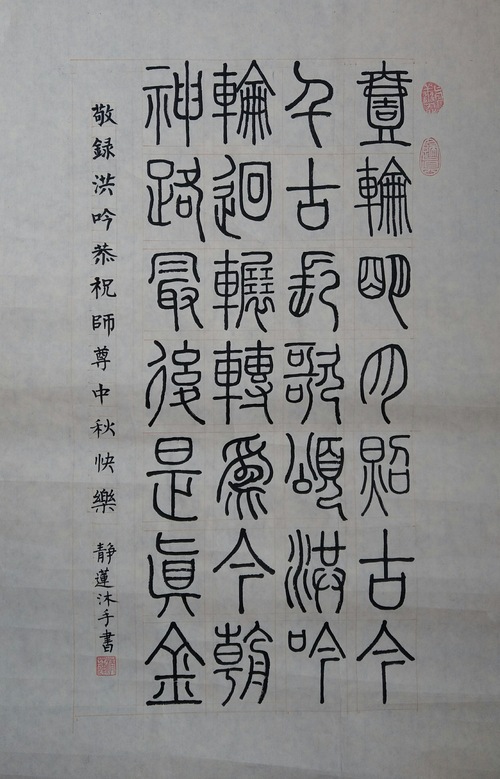 壹輪明月照古今
千古長歌頌洪吟
輪迴輾轉爲今朝
神路最後是眞金
敬録洪吟恭祝師尊中秋快樂 靜蓮沐手書